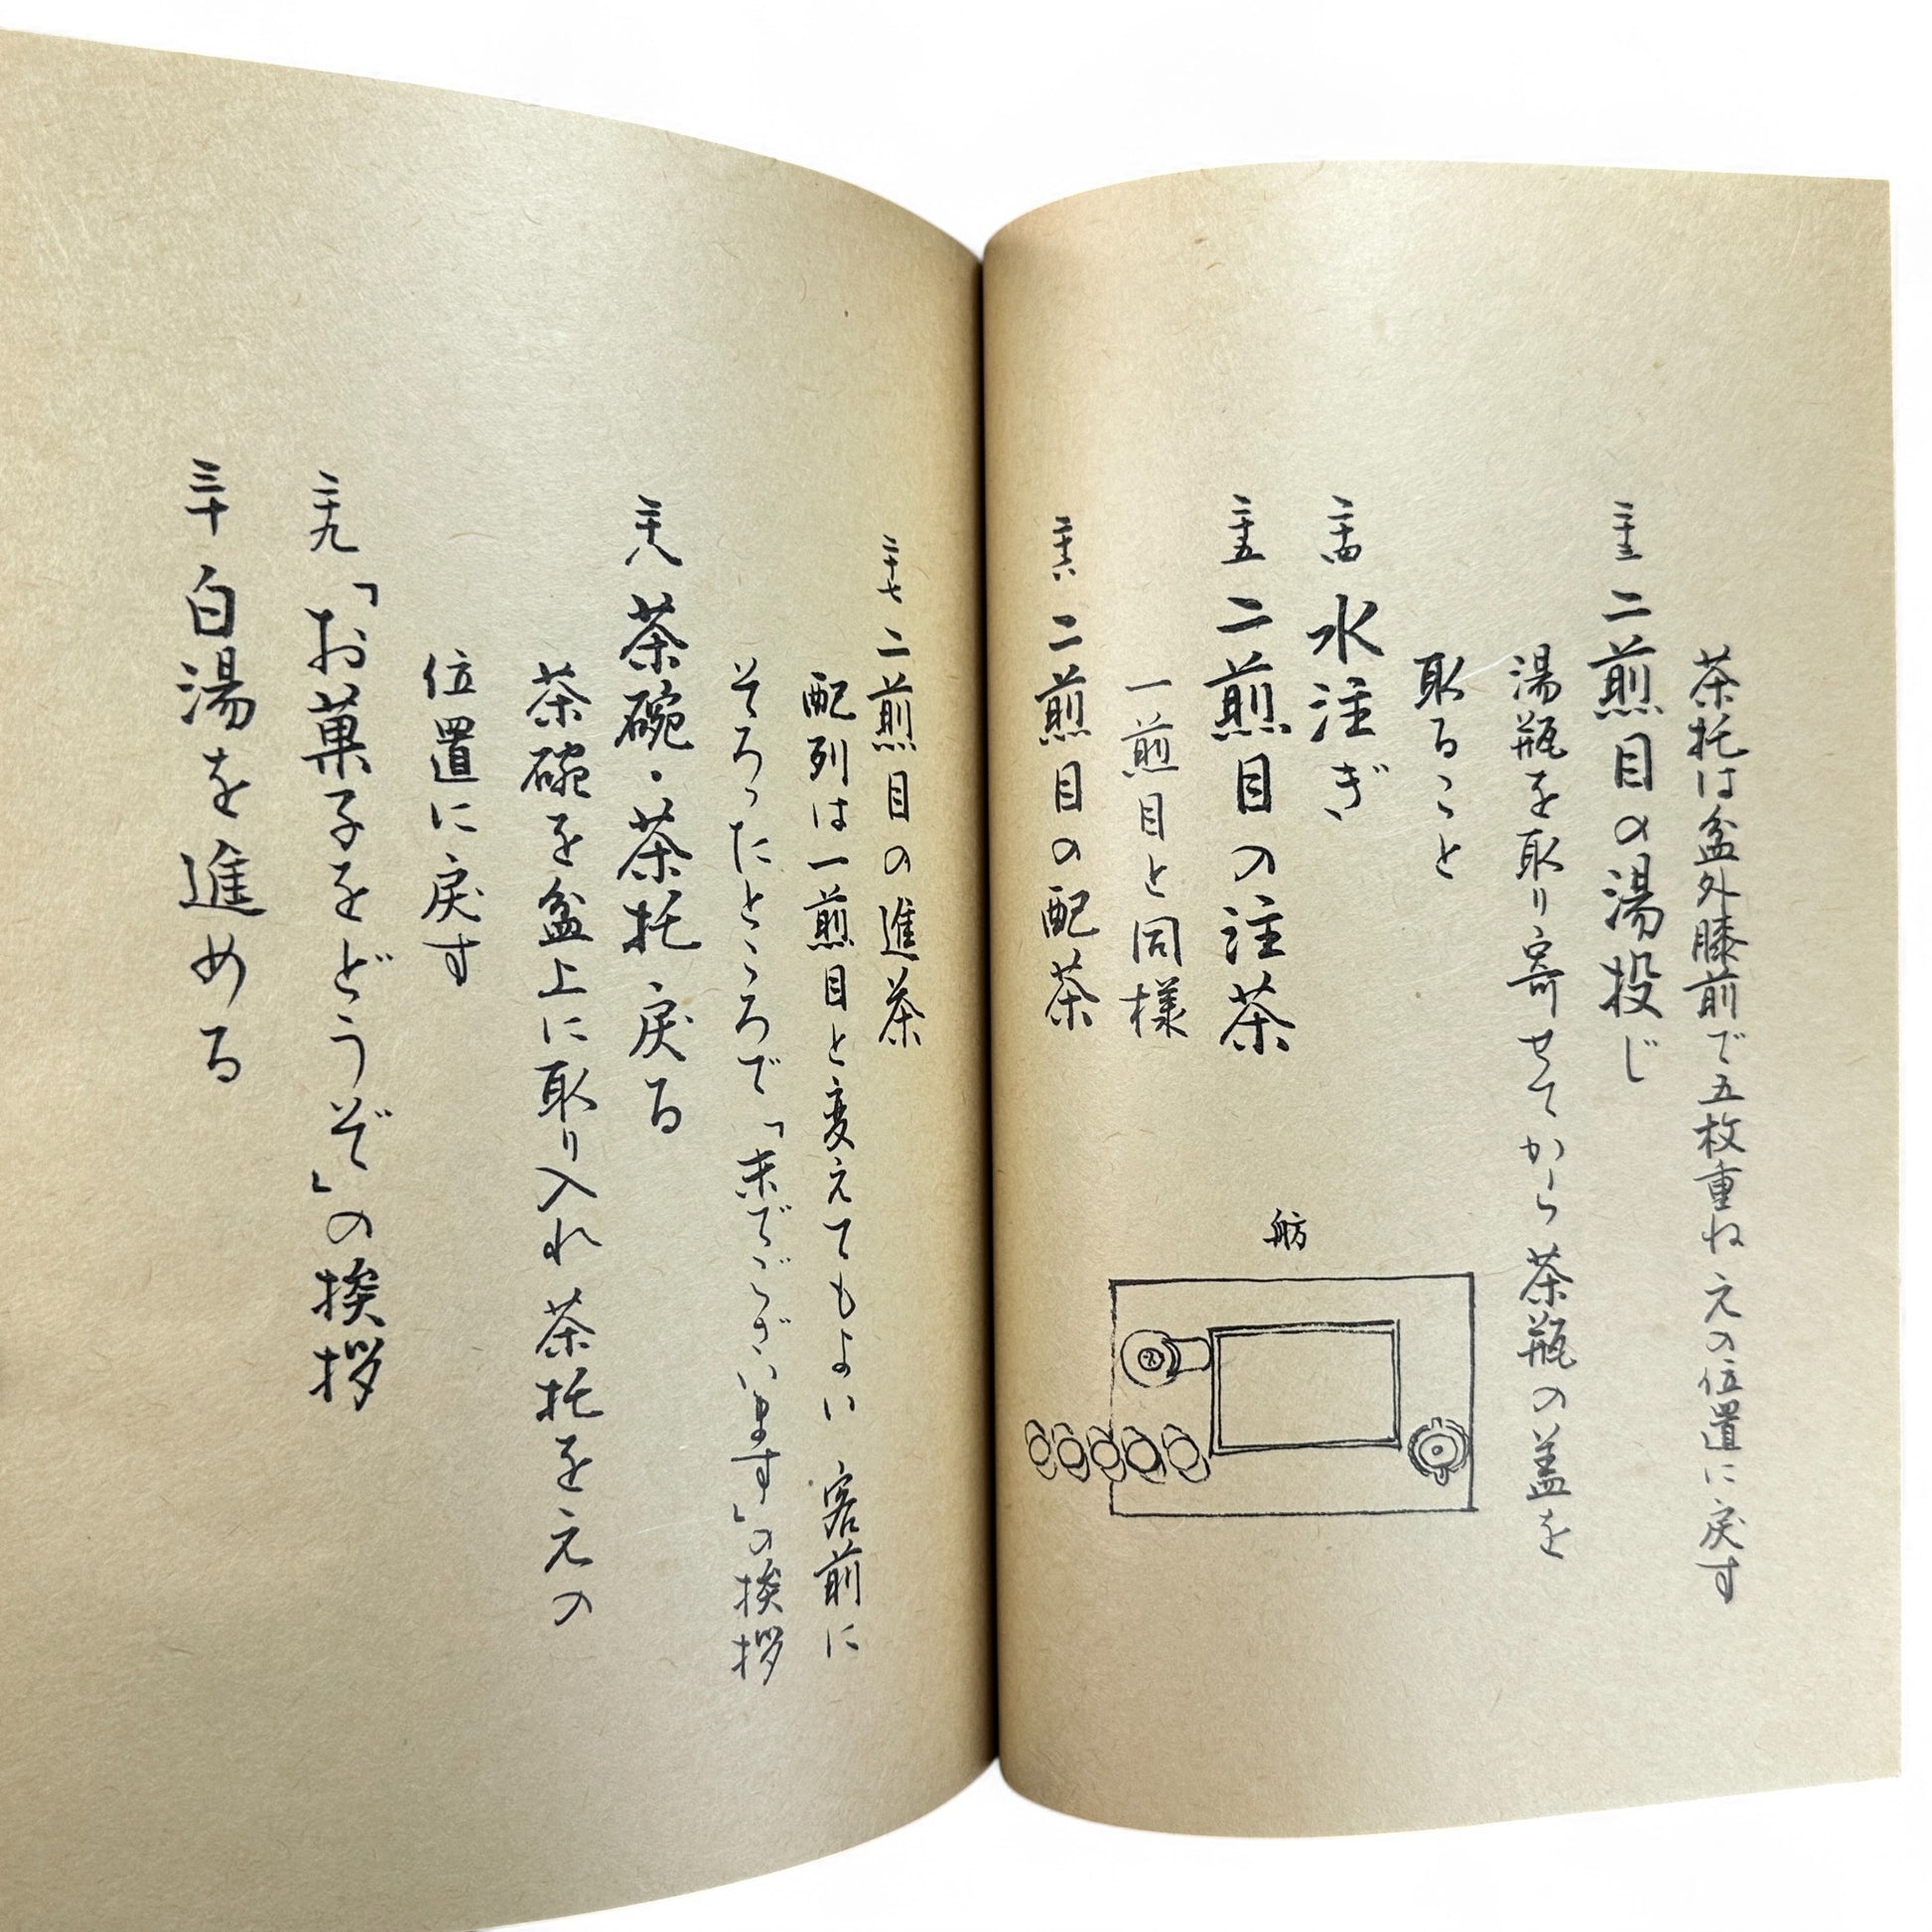 茶托は盆外膝前で五枚重ね 元の位置に戻す
二十三 二煎目の湯投じ
湯瓶を取り寄せてから茶瓶の蓋を
取ること
二十四 水注ぎ
二十五 二煎目の注茶
一煎目と同様
二十六 二煎目の配茶
二十七 二煎目の進茶
配列は一煎目と変えてもよい 客前に
そろったところで「末でございます」の挨拶
二十八 茶碗・茶托 戻る
茶碗を盆上に取り入れ 茶托を元の
位置に戻す
二十九 「お菓子をどうぞ」の挨拶
三十 白湯を進める